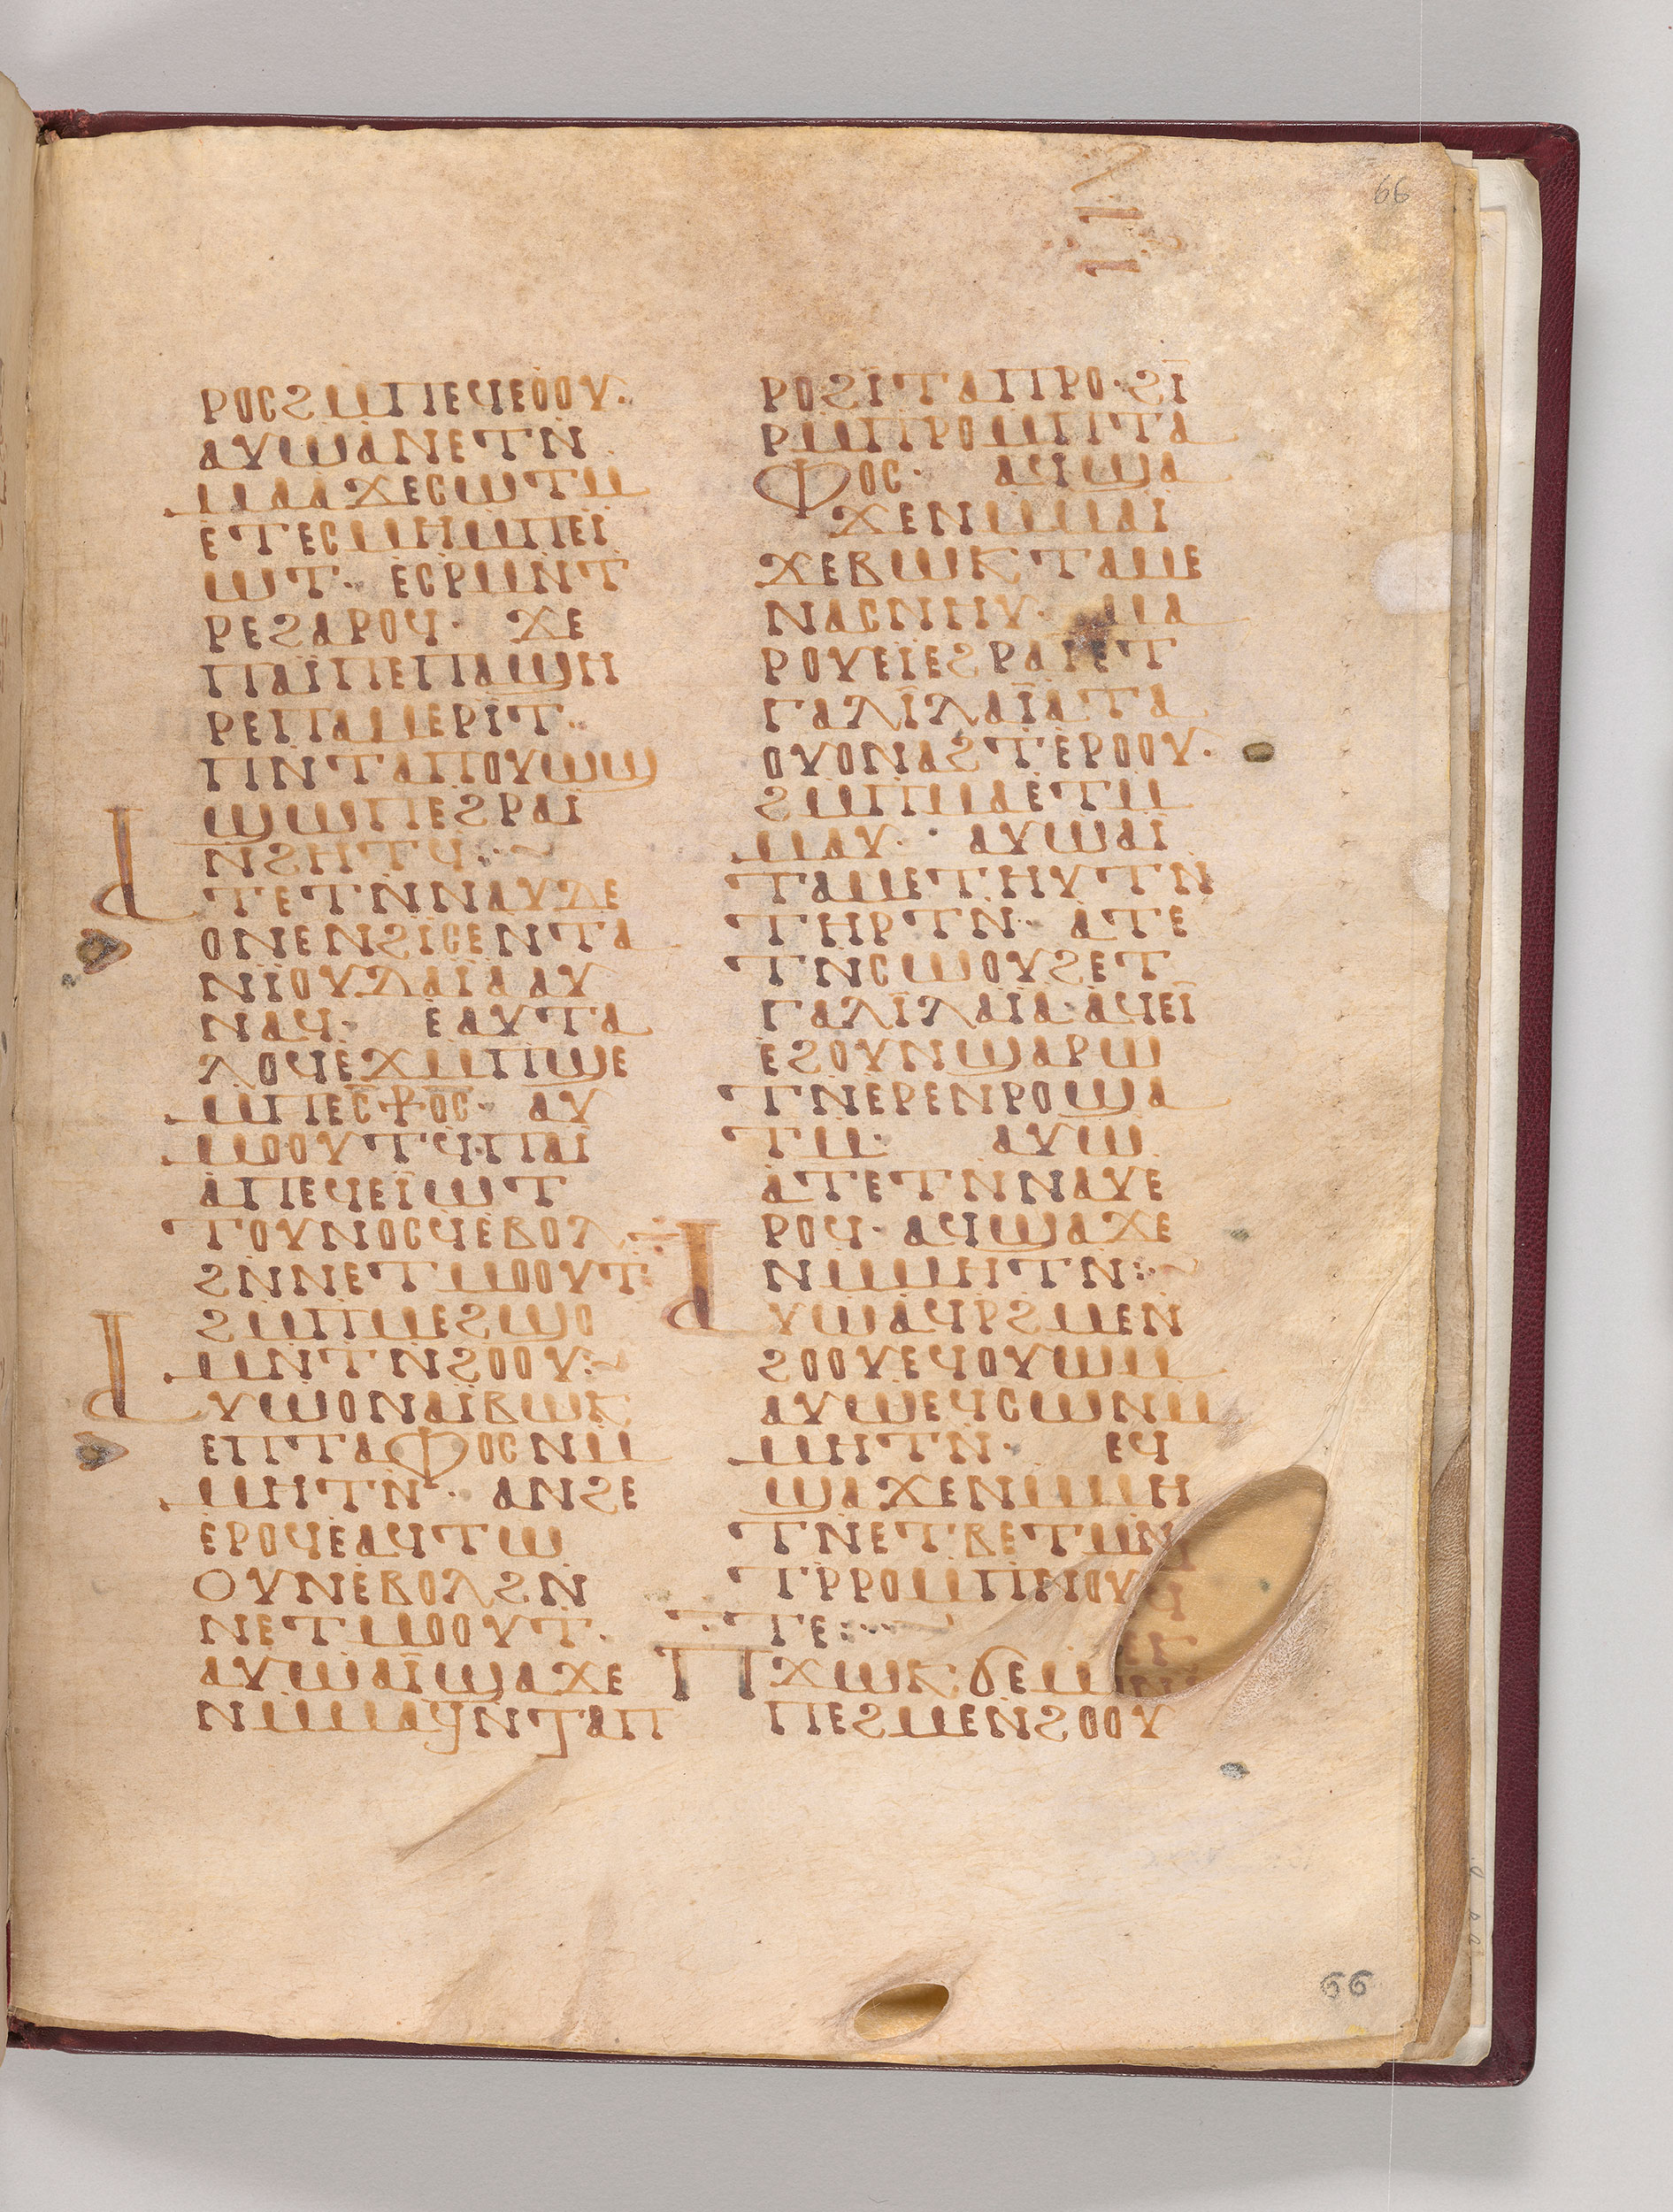 66
ⲣⲟⲥϩⲙⲡⲉϥⲉⲟⲟⲩ·
ⲁⲩⲱⲁⲛⲉⲧⲛ
ⲙⲁⲁϫⲉⲥⲱⲧⲙ
ⲉⲧⲉⲥⲙⲏⲙⲡⲉⲓ̈
ⲱⲧ· ⲉⲥⲣⲙⲛⲧ
ⲣⲉϩⲁⲣⲟϥ· ϫⲉ
ⲡⲁⲓ̈ⲡⲉⲡⲁϣⲏ
ⲣⲉⲡⲁⲙⲉⲣⲓⲧ·
ⲡⲛⲧⲁⲡⲟⲩⲱϣ
ϣⲱⲡⲉϩⲣⲁⲓ̈
ⲛϩⲏⲧϥ:~
ⲁⲧⲉⲧⲛⲛⲁⲩⲇⲉ
ⲟⲛⲉⲛϩⲓⲥⲉⲛⲧⲁ
ⲛⲓ̈ⲟⲩⲇⲁⲓ̈ⲁⲁⲩ
ⲛⲁϥ· ⲉⲁⲩⲧⲁ
ⲗⲟϥⲉϫⲙⲡϣⲉ
ⲙⲡⲉⲥⳁⲟⲥ· ⲁⲩ
ⲙⲟⲟⲩⲧϥ·ⲡⲁⲓ̈
ⲁⲡⲉϥⲉⲓ̈ⲱⲧ
ⲧⲟⲩⲛⲟⲥϥⲉⲃⲟⲗ
ϩⲛⲛⲉⲧⲙⲟⲟⲩⲧ:
ϩⲙⲡⲙⲉϩϣⲟ
ⲙⲛⲧⲛϩⲟⲟⲩ:~
ⲁⲩⲱⲟⲛⲁⲓ̈ⲃⲱⲕ
ⲉⲡⲧⲁⲫⲟⲥⲛⲙ
ⲙⲏⲧⲛ· ⲁⲛϩⲉ
ⲉⲣⲟϥⲉⲁϥⲧⲱ
ⲟⲩⲛⲉⲃⲟⲗϩⲛ
ⲛⲉⲧⲙⲟⲟⲩⲧ·
ⲁⲩⲱⲁⲓ̈ϣⲁϫⲉ
ⲛⲙⲙⲁϥⲛⲧⲁⲡ
ⲣⲟϩⲓⲧⲁⲡⲣⲟ·ϩⲓ
ⲣⲙⲡⲣⲟⲙⲡⲧⲁ
ⲫⲟⲥ· ⲁϥϣⲁ
ϫⲉⲛⲙⲙⲁⲓ
ϫⲉⲃⲱⲕⲧⲁⲙⲉ
ⲛⲁⲥⲛⲏⲩ· ⲙⲁ
ⲣⲟⲩⲉⲓⲉϩⲣⲁⲓ̈ⲉⲧ
ⲅⲁⲗⲓⲗⲁⲓ̈ⲁⲧⲁ
ⲟⲩⲟⲛⲁϩⲧⲉⲣⲟⲟⲩ·
ϩⲙⲡⲙⲁⲉⲧⲙ
ⲙⲁⲩ· ⲁⲩⲱⲁⲓ̈
ⲧⲁⲙⲉⲧⲏⲩⲧⲛ
ⲧⲏⲣⲧⲛ· ⲁⲧⲉ
ⲧⲛⲥⲱⲟⲩϩⲉⲧ
ⲅⲁⲗⲓⲗⲁⲓ̈ⲁ·ⲁϥⲉⲓ
ⲉϩⲟⲩⲛϣⲁⲣⲱ
ⲧⲛⲉⲣⲉⲛⲣⲟϣⲁ
ⲧⲙ· ⲁⲩⲱ
ⲁⲧⲉⲧⲛⲛⲁⲩⲉ
ⲣⲟϥ·ⲁϥϣⲁϫⲉ
ⲛⲙⲙⲏⲧⲛ:~
ⲁⲩⲱⲁϥⲣϩⲙⲉⲛ
ϩⲟⲟⲩⲉϥⲟⲩⲱⲙ
ⲁⲩⲱⲉϥⲥⲱⲛⲙ
ⲙⲏⲧⲛ· ⲉϥ
ϣⲁϫⲉⲛⲙⲙⲏ
ⲧⲛⲉⲧⲃⲉⲧⲙⲛ
ⲧⲣⲣⲟⲙⲡⲛⲟⲩ
ⲧⲉ:~
ⲡϫⲱⲕϭⲉⲙ
ⲡⲉϩⲙⲉⲛϩⲟⲟⲩ
66